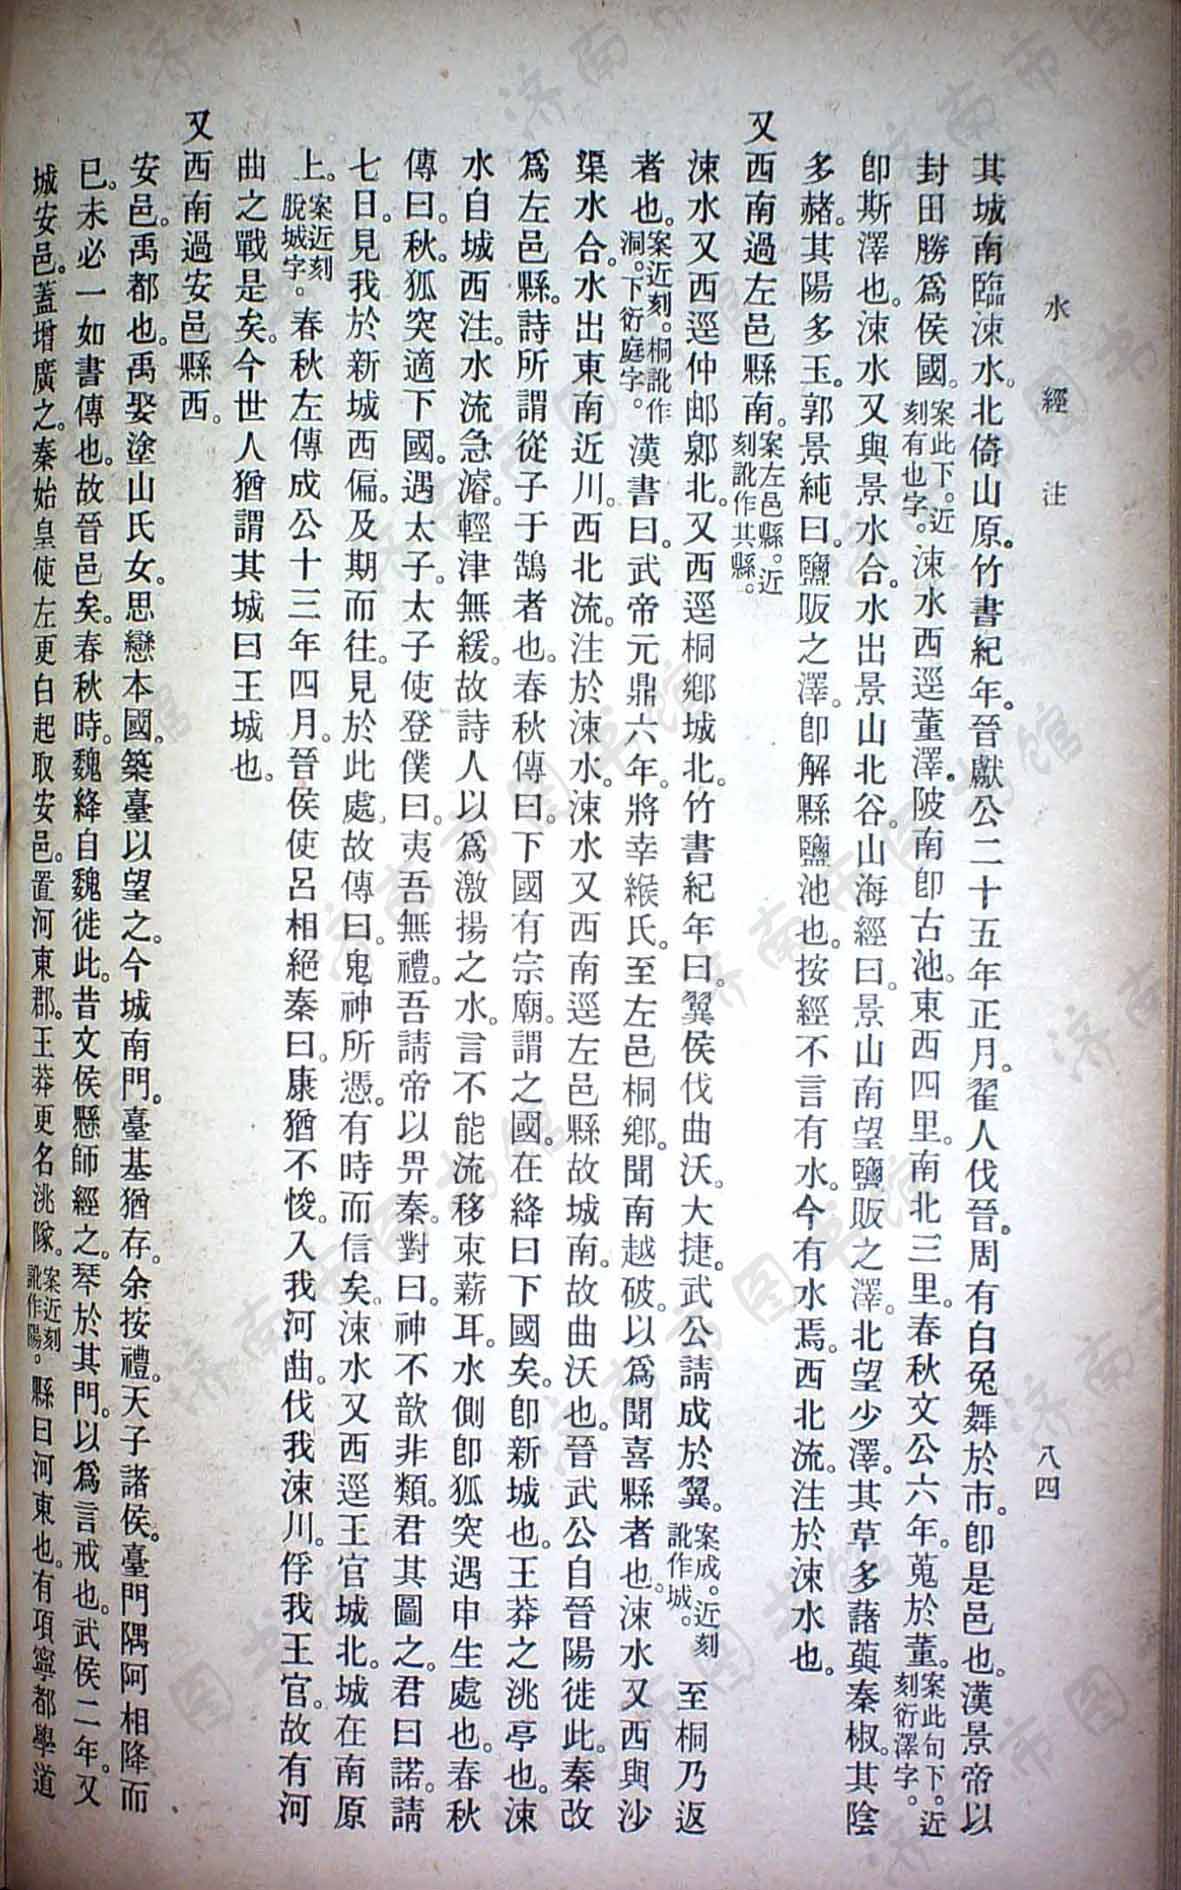 水經注
八四
其城南臨涑水。北倚山原。竹書紀年。晉獻公二十五年正月。翟人伐晉。周有白兔舞於市。卽是邑也。漢景帝以
封田勝爲侯國。案此下。近刻有也字。涑水西逕董澤。陂南卽古池。東西四里。南北三里。春秋文公六年。蒐於董。案此句下。近刻衍澤字。
卽斯澤也。涑水又與景水合。水出景山北谷。山海經曰。景山南望鹽販之澤。北望少澤。其草多藷藇秦椒。其陰
多赭。其陽多玉。郭景純曰。鹽販之澤。卽解縣鹽池也。按經不言有水。今有水焉。西北流。注於涑水也。
又西南過左邑縣南。案左邑縣。近刻訛作其縣。
涑水又西逕仲郵郻北。又西逕桐鄉城北。竹書紀年曰。翼侯伐曲沃。大捷。武公請成於翼。案成。近刻訛作城。至桐乃返
者也。案近刻。桐訛作洞。下衍庭字。漢書曰。武帝元鼎六年。將幸緱氏。至左邑桐鄉。聞南越破。以爲聞喜縣者也。涑水又西與沙
渠水合。水出東南近川。西北流。注於涑水。涑水又西南逕左邑縣故城南。故曲沃也。晉武公自晉陽徙此。秦改
爲左邑縣。詩所謂從子于鵠者也。春秋傳曰。下國有宗廟。謂之國。在絳曰下國矣。卽新城也。王莽之洮亭也。涑
水自城西注。水流急濬。輕津無緩。故詩人以爲激揚之水。言不能流移束薪耳。水側卽狐突遇申生處也。春秋
傳曰。秋。狐突適下國。遇太子。太子使登僕曰。夷吾無禮。吾請帝以畀秦。對曰。神不歆非類。君其圖之。君曰諾。請
七日。見我於新城西偏。及期而往。見於此處。故傳曰。鬼神所憑。有時而信矣。涑水又西逕王官城北。城在南原
上。案近刻脫城字。春秋左傳成公十三年四月。晉侯使呂相絕秦曰。康猶不悛。入我河曲。伐我涑川。俘我王官。故有河
曲之戰是矣。今世人猶謂其城曰王城也。
又西南過安邑縣西。
安邑。禹都也。禹娶塗山氏女。思戀本國。築臺以望之。今城南門。臺基猶存。余按禮。天子諸侯。臺門隅阿相降而
已。未必一如書傳也。故晉邑矣。春秋時。魏絳自魏徙此。昔文侯懸師經之。琴於其門。以爲言戒也。武侯二年。又
城安邑。蓋增廣之。秦始皇使左更白起取安邑。置河東郡。王莽更名洮隊。案近刻訛作陽。縣曰河東也。有項寧都學道